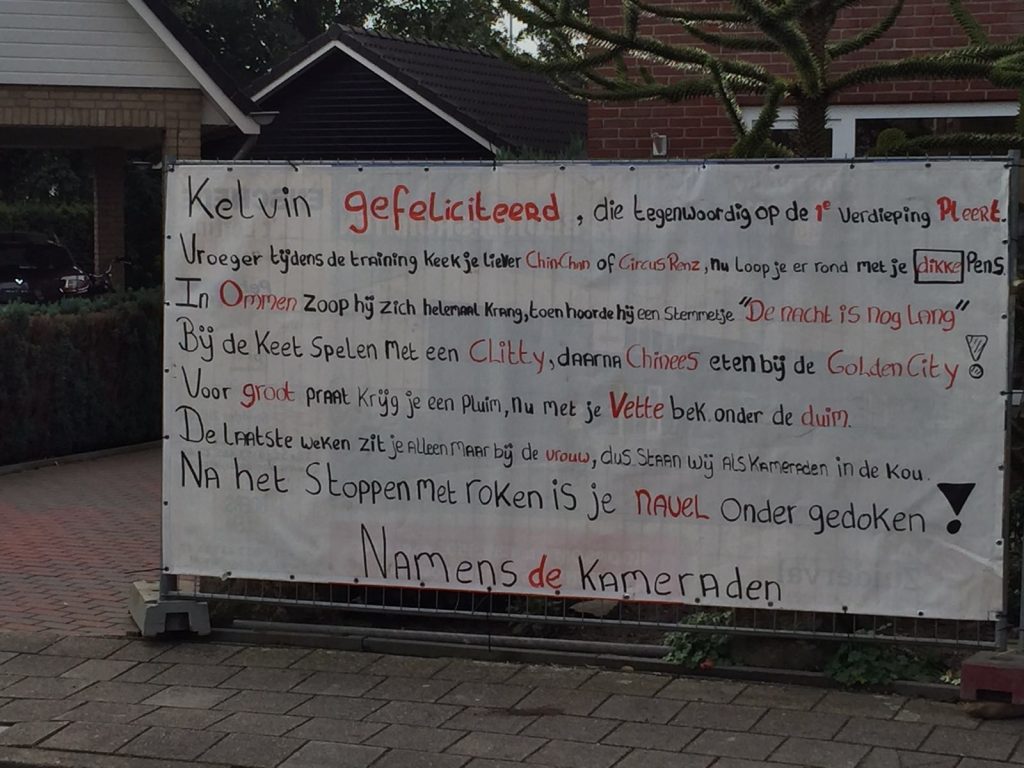 Kelvin gefeliciteerd, die tegenwoordig op de 1e Verdieping Pleert.
Vroeger tijdens de training keek je liever ChinChan of Circus Renz, nu loop je er rond met je dikke Pens
In Ommen zoop hij zich helemaal krang, toen hoorde hij een stemmetje "De nacht is nog lang"
Bij de Keet Spelen met een Clitty, daarna Chinees eten bij de Golden City!
Voor groot praat krijg je een pluim, nu met je Vette bek onder de duim.
De laatste weken zit je alleen maar bij de vrouw, dus staan wij als kameraden in de kou.
Na het stoppen met roken is je navel onder gedoken!
Namens de kameraden